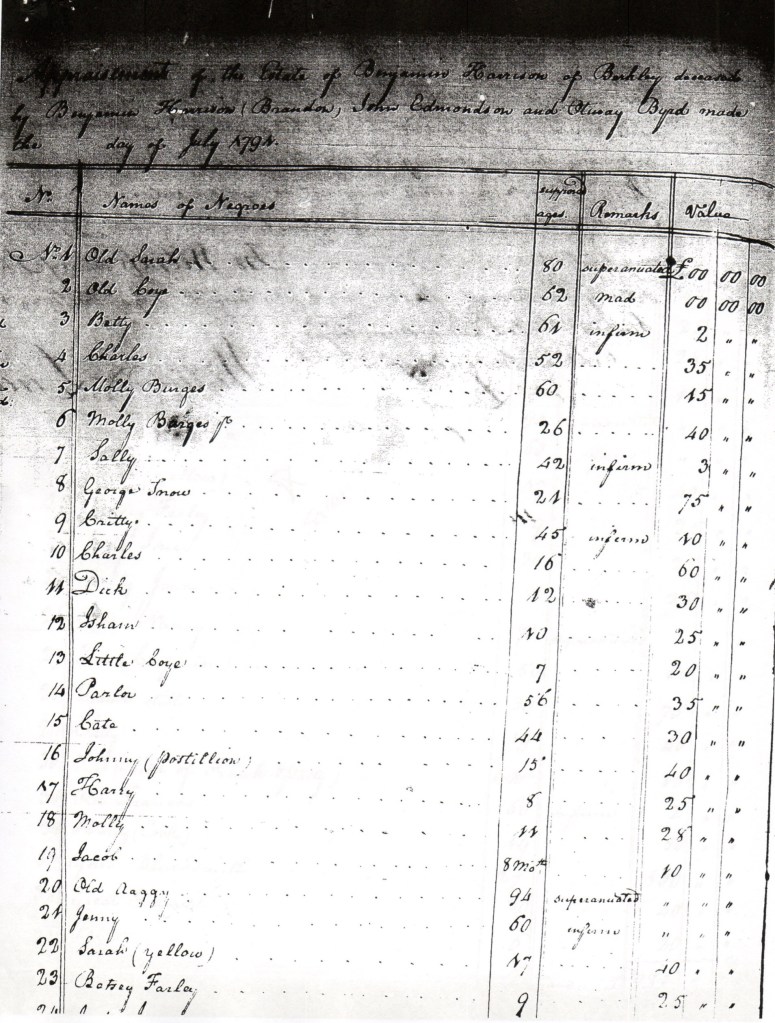 Appraisment of the Estate of Benjamin Harrison of Berkley deceased
by Benjamin Harrison (Brandon, John Edmondson and Otway Byrd made
the day of July 1791.
No. Names of Negroes suppos'd ages. Remarks Value
No. 1 Old Sarah 80 superanuated £ 00 00 00
2 Old Coye 62 mad 00 00 00
3 Betty 61 infirm 2 " "
4 Charles 52 35 " "
5 Molly Burges 60 15 " "
6 Molly Burges 26 40 " "
7 Sally 42 infirm 3 " "
8 George Snow 21 75 " "
9 Critty 45 infirm 10 " "
10 Charles 16 60 " "
11 Dick 12 30 " "
12 Isham 10 25 " "
13 Little Coye 7 20 " "
14 Parlor 56 35 " "
15 Cate 44 30 " "
16 Johnny (postillion) 15 40 " "
17 Harry 8 25 " "
18 Molly 11 28 " "
19 Jacob 8 Moth. 10 " "
20 Old Aaggy 94 superanuated " " "
21 Jenny 60 infirm " " "
22 Sarah (yellow) 17 40 " "
23 Betsey Farley 9 25 " "